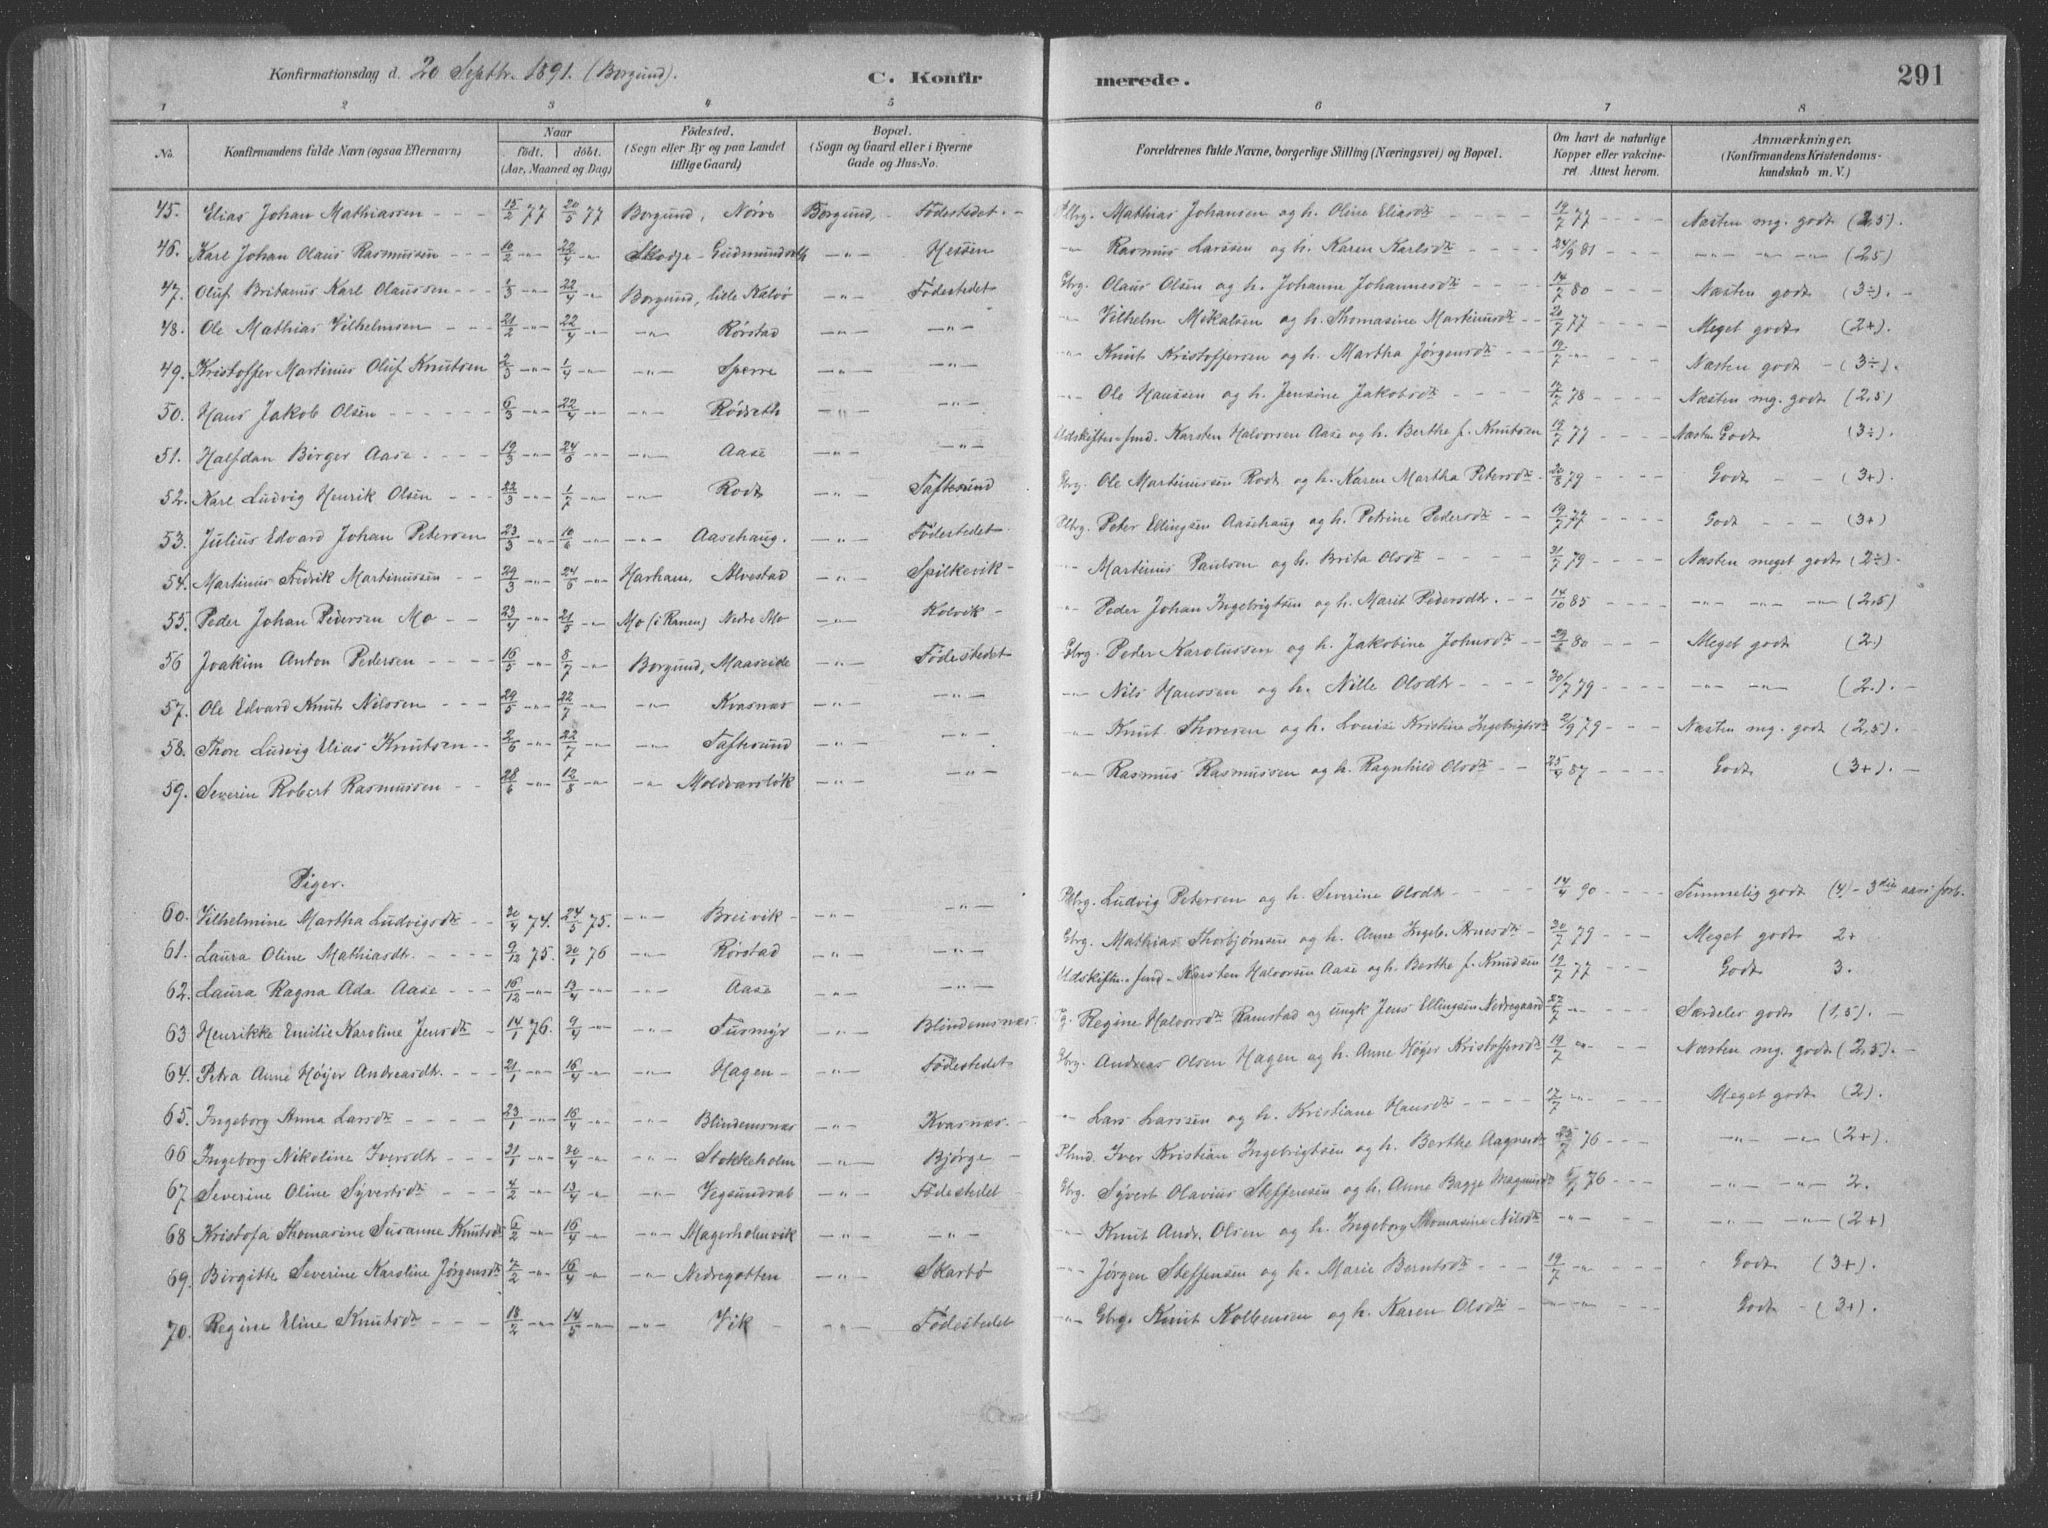 Konfirmationsdag d. 20 Septbr. 1891. (Borgund). C. Konfirmerede. 291
1 2 3 4 5 6 7 8
No. Konfirmandens fulde Navn (ogsaa Efternavn) Naar født. døbt. (Aar, Maaned og Dag) Fødested. (Sogn eller By og paa Landet tillige Gaard) Bopæl. (Sogn og Gaard eller i Byerne Gade og Hus-No. Forældrenes fulde Navne, borgerlige Stilling (Næringsvei) og Bopæl. Om havt de naturlige Kopper eller vakcineret. Attest herom. Anmærkninger. (Konfirmandens Kristendomskundskab m. V.)
45. Elias Johan Mathiassen 15/2 77 20/5 77 Borgund, Nørve Borgund, Fødestedet. Plbrg. Mathias Johansen og h. Oline Eliasdtr 19/7 77 Næsten mg. godt (2,5).
46. Karl Johan Olaus Rasmussen 10/2 -"- 22/4 -"- Skodje Gudmundset -"- Hessen -"- Rasmus Larssen og h. Karen Karlsdtr 24/9 81 -"- -"- -"- (2,5)
47. Oluf Britanus Karl Olaussen 1/3 -"- 22/4 -"- Borgund, lille Kalvø -"- Fødestedet Gbrg. Olaus Olsen og h. Johanne Johannesdtr 14/7 80 Næsten godt (3÷).
48. Ole Mathias Vilhelmsen 21/2 -"- 22/4 -"- -"- Rørstad -"- -"- -"- Vilhelm Mikalsen og h. Thomasine Martinusdtr 20/7 77 Meget godt (2+).
49. Kristoffer Martinus Oluf Knutsen 2/3 -"- 1/4 -"- -"- Sperre -"- -"- -"- Knut Kristoffersen og h. Martha Jørgensdtr 19/7 -"- Næsten godt (3÷)
50. Hans Jakob Olsen 6/3 -"- 22/4 -"- -"- Rødseth -"- -"- -"- Ole Hanssen og h. Jensine Jakobsdtr 12/7 78 Næsten mg. godt (2,5)
51. Halfdan Birger Aase 19/3 -"- 24/6 -"- -"- Aase -"- -"- Udskiftn.fmd. Karsten Halvorsen Aase og h. Berthe f. Knutsen 19/7 77 Næsten Godt (3÷)
52. Karl Ludvig Henrik Olsen 22/3 -"- 1/7 -"- -"- Rodt -"- Taftesund Gbrg. Ole Martinussen Rodt og h. Karen Martha Petersdtr 20/8 79 Godt (3+)
53. Julius Edvard Johan Petersen 23/3 -"- 10/6 -"- -"- Aasehaug. -"- Fødestedet Plbrg. Peter Ellingsen Aasehaug og h. Petrine Pedersdtr 19/7 77 Godt (3+)
54. Martinus Fredrik Martinussen 29/3 -"- 24/6 -"- Harham, Alvestad -"- Spilkevik -"- Martinus Paulsen og h. Brita Olsdtr 31/7 79 Næsten meget godt (2÷)
55. Peder Johan Pedersen Mo 23/4 -"- 21/5 -"- Mo (i Ranen) Nedre Mo -"- Kolvik -"- Peder Johan Ingebrigtsen og h. Marit Pedersdtr. 14/10 85 -"- -"- -"- (2,5)
56 Joakim Anton Pedersen 16/5 -"- 8/7 -"- Borgund, Maaseide -"- Fødestedet Gbrg. Peder Karolussen og h. Jakobine Johnsdtr 29/6 80 Meget godt (2)
57. Ole Edvard Knut Nilssen 29/5 -"- 22/7 -"- -"- Kvasnæs -"- -"- -"- Nils Hanssen og h. Nille Olsdtr 30/7 79 -"- -"- (2.)
58. Thore Ludvig Elias Knutsen 2/6 -"- 22/7 -"- -"- Taftesund -"- -"- -"- Knut Thoresen og h. Louise Kristine Ingebrigtsdtr 2/9 79 Næsten mg. godt (2,5).
59. Severin Robert Rasmussen 28/6 -"- 12/8 -"- -"- Moldværsløk -"- -"- -"- Rasmus Rasmussen og h. Ragnhild Olsdtr 25/4 87 Godt (3+).
Piger.
60. Vilhelmine Martha Ludvigsdtr 20/4 74. 24/5 75. -"- Breivik -"- -"- Plbrg. Ludvig Petersen og h. Severine Olsdtr 14/4 90 Temmelig godt (4)
61. Laura Oline Mathiasdtr. 9/12 75. 30/1 76 -"- Rørstad -"- -"- Gbrg. Mathias Thorbjørnsen og h. Anne Ingeb. Arnesdtr 30/7 79 Meget godt 2+
62. Laura Ragna Ada Aase 16/12 -"- 13/4 -"- -"- Aase -"- -"- Udskiftn.fmd Karsten Halvorsen Aase og h. Berthe f. Knudsen 19/7 77 Godt 3.
63 Henrikke Emilie Karoline Jensdtr 14/1 76. 9/4 -"- -"- Tusmyr -"- Blindemsnæs Regine Halvorsdtr Ramstad og ungk Jens Ellingsen Nedregaard 27/7 -"- Særdeles godt (1,5).
64. Petra Anne Høyer Andreasdtr. 21/1 -"- 16/4 -"- -"- Hagen -"- Fødestedet Gbrg. Andreas Olsen Hagen og h. Anne Høyer Kristoffersdtr 19/7 -"- Næsten mg. godt (2,5).
65. Ingeborg Anna Larsdtr 23/1 -"- 16/4 -"- -"- Blindemsnæs -"- Kvasnæs -"- Lars Larssen og h. Kristiane Hansdtr 17/7 -"- Meget godt (2).
66 Ingeborg Nikoline Iversdtr 31/1 -"- 30/4 -"- -"- Stokkeholm -"- Bjørge Plmd. Iver Kristian Ingebrigtsen og h. Berthe Aagesdtr 25/7 76 -"- -"- (2+)
67 Severine Oline Syvertsdtr 4/2 -"- 13/4 -"- -"- Vegsundrab -"- Fødestedet Gbrg. Syvert Olavius Steffensen og h. Anne Bagge Magnusdtr 76 -"- -"- 2.
68 Kristofa Thomasine Susanne Knutsdtr 6/2 -"- 16/4 -"- -"- Magerholmvik -"- -"- -"- Knut Andr. Olsen og h. Ingeborg Thomasine Nilsdtr -"- -"- -"- -"- (2+)
69. Birgitte Severine Karoline Jørgensdtr 7/2 -"- 16/4 -"- -"- Nedregotten -"- Skarbø -"- Jørgen Steffensen og h. Marie Berntsdtr 19/7 -"- Godt (3+).
70. Regine Eline Knutsdtr 18/2 -"- 14/5 -"- -"- Vik -"- Fødestedet -"- Gbrg. Knut Kolbensen og h. Karen Olsdtr -"- -"- Godt (3+).